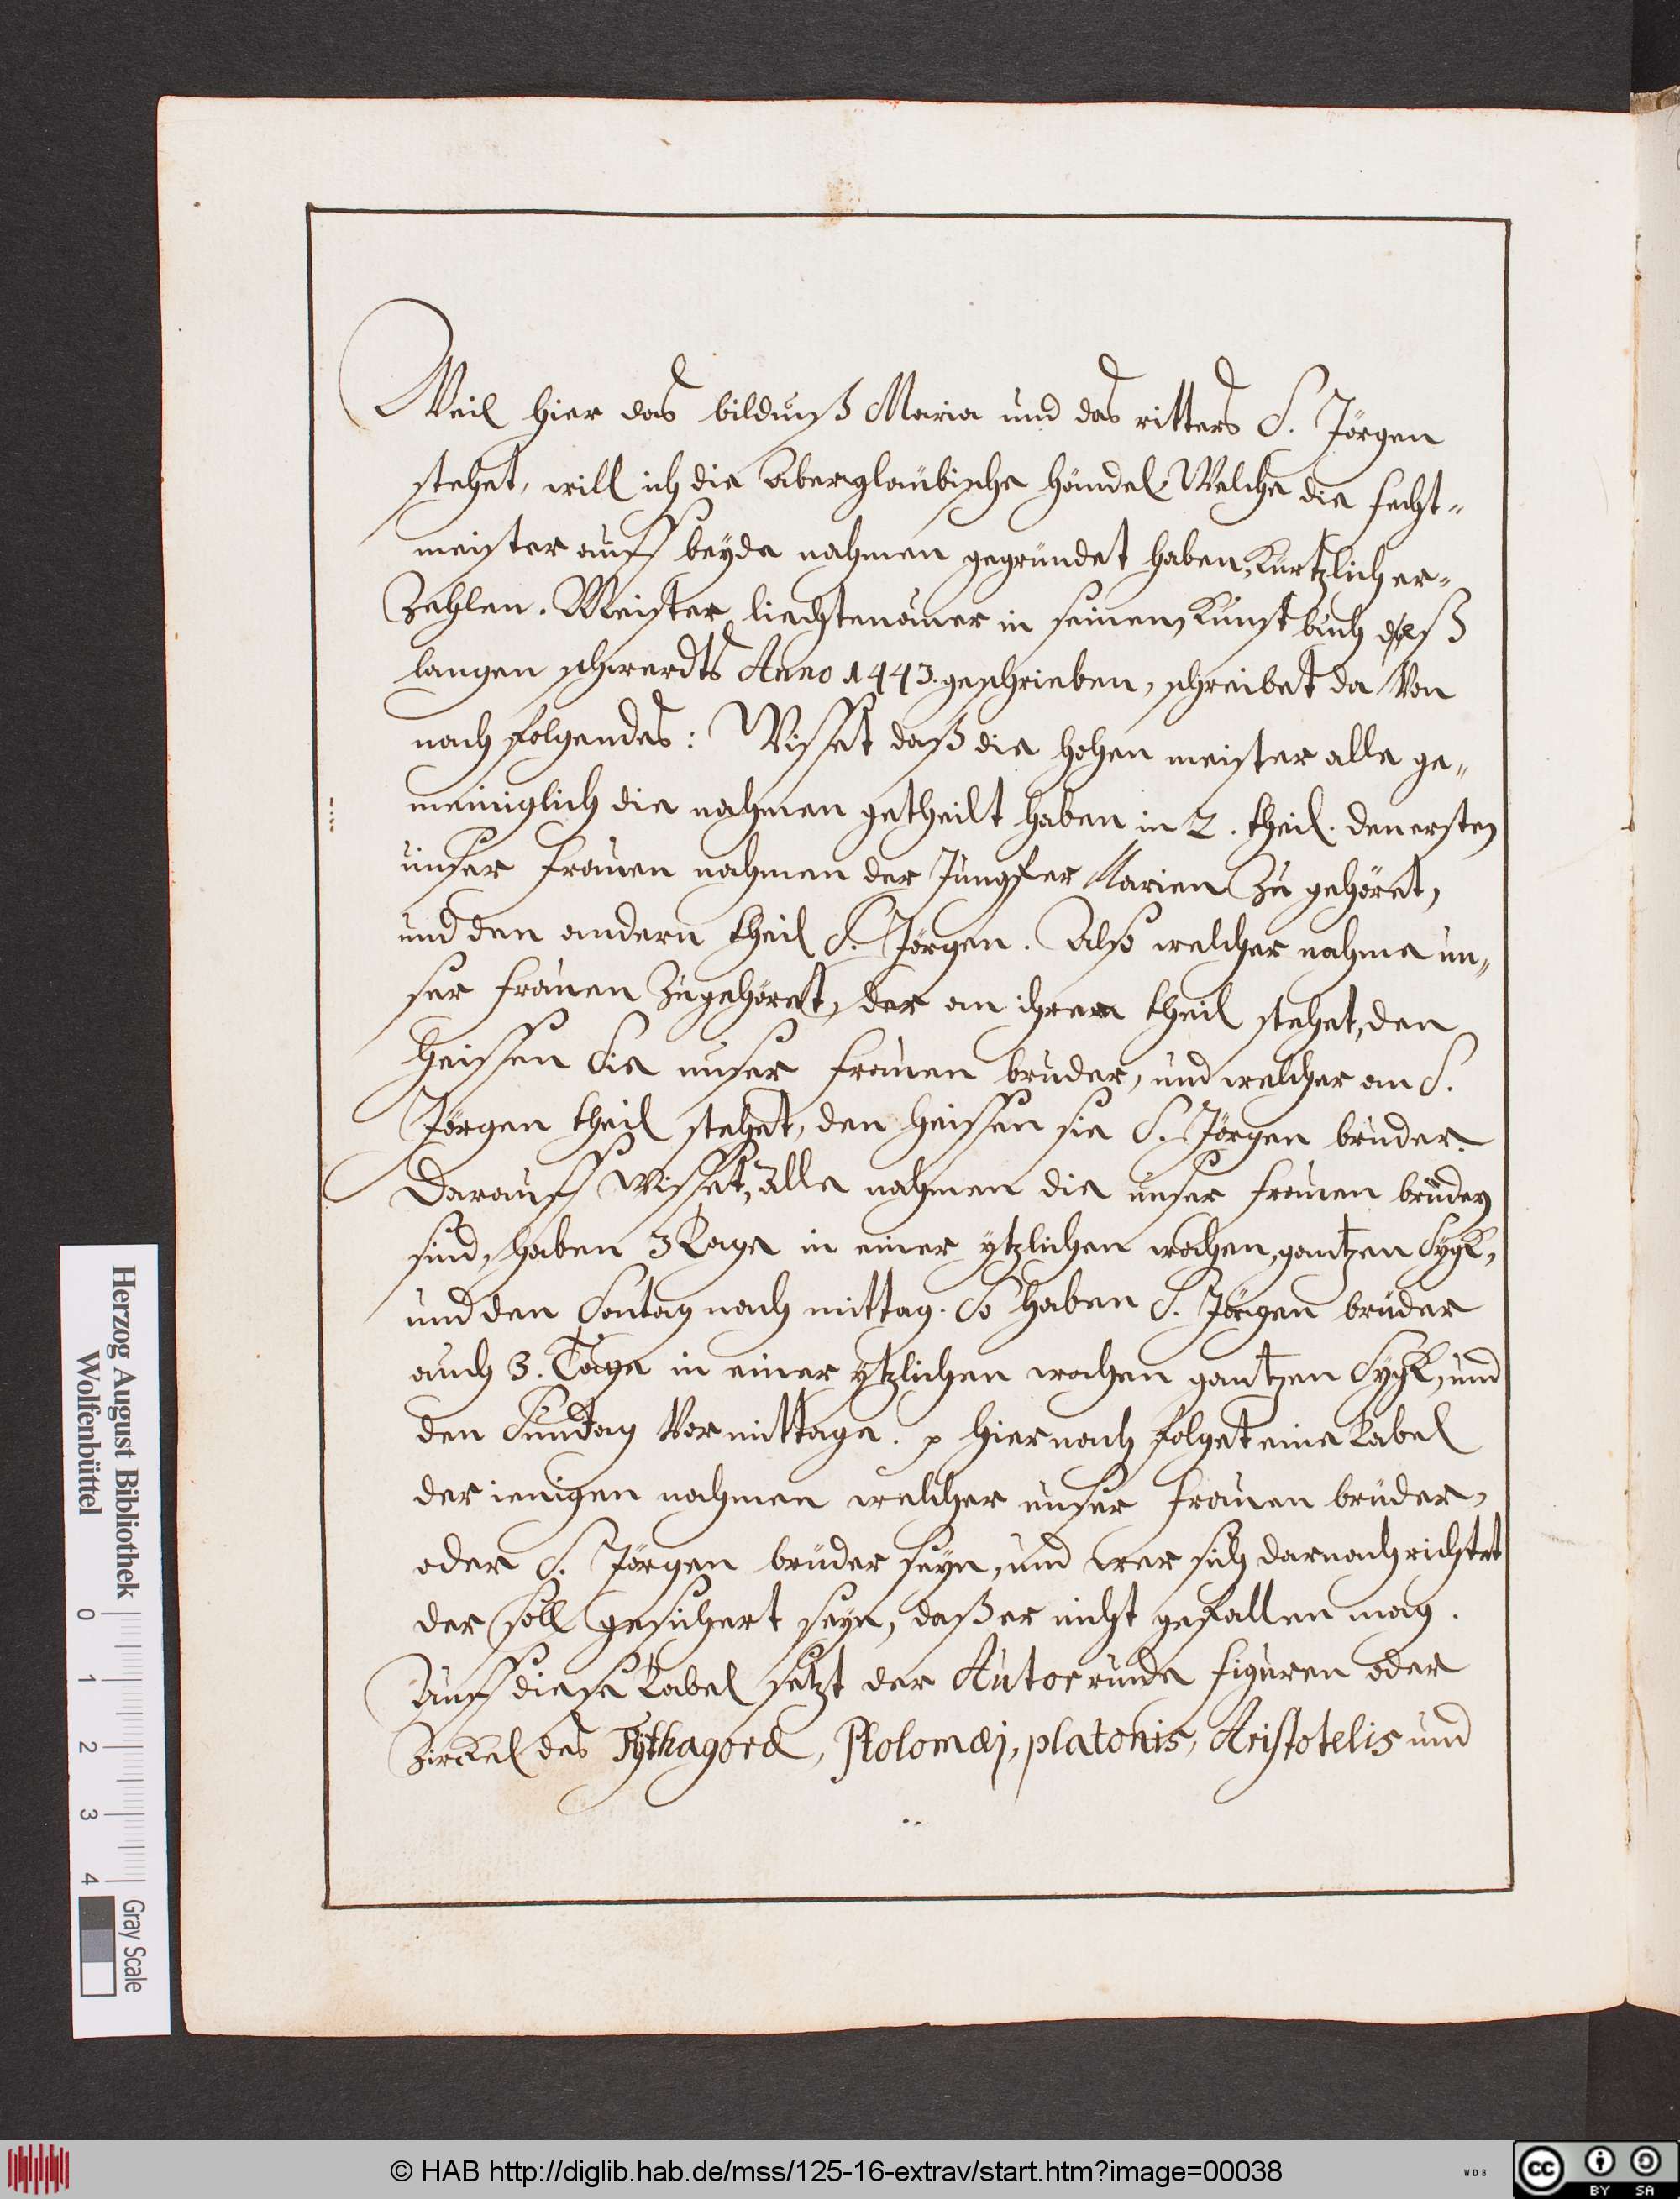 Weil hier das bildnuß Maria und des ritters S. Jörgen
stehet, will ich die Abergläubische händel Welche die fecht=
meister auff beyde nahmen gegründet haben, Kürtzlich er=
Zehlen. Meister liechtenauer in seinem Kunst buch deß
langen schwerdts Anno 1443. geschrieben, schreibet da Von
nach folgendes: Wisset daß die hohen meister alle ge=
meiniglich die nahmen getheilt haben in 2. theil. den ersten
unser frauen nahmen der Jungfer Marien Zu gehöret,
und den andern theil S. Jörgen. Also welcher nahme un=
ser frauen Zugehöret, der an ihrem theil stehet, den
heissen Sie unser frauen bruder, und welcher an S.
Jörgen theil stehet, den heissen sie S. Jörgen bruder.
Darauff Wisset, alle nahmen die unser frauen brüder
sind, haben 3 Tage in einer ytzlichen wochen, gantzen Sygk,
und den Sontag nach mittag. So haben S. Jörgen brüder
auch 3. Tage in einer ytzlichen wochen gantzen Sygk, und
den Suntag Vormittage. p hiernach folget eine Tabel
der ienigen nahmen welcher unser frauen brüder,
oder S. Jörgen brüder seyn, und wer sich darnach richtet
der soll gesichert seyn, daß er nicht gefallen mag.
Auff diese Tabel setzt der Autor runde figuren oder
Zirckel des Pythagoræ, Ptolomæj, platonis, Aristotelis und
Herzog August Bibliothek
Wolfenbüttel
0 1 2 3 4
Gray Scale
© HAB http://diglib.hab.de/mss/125-16-extrav/start.htm?image=00038
WDB
cc
BY SA